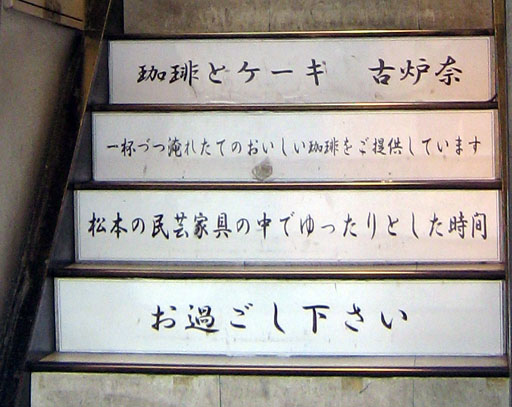 珈琲とケーキ　古炉奈
一杯づつ淹れたてのおいしい珈琲をご提供しています
松本の民芸家具の中でゆったりとした時間
お過ごし下さい